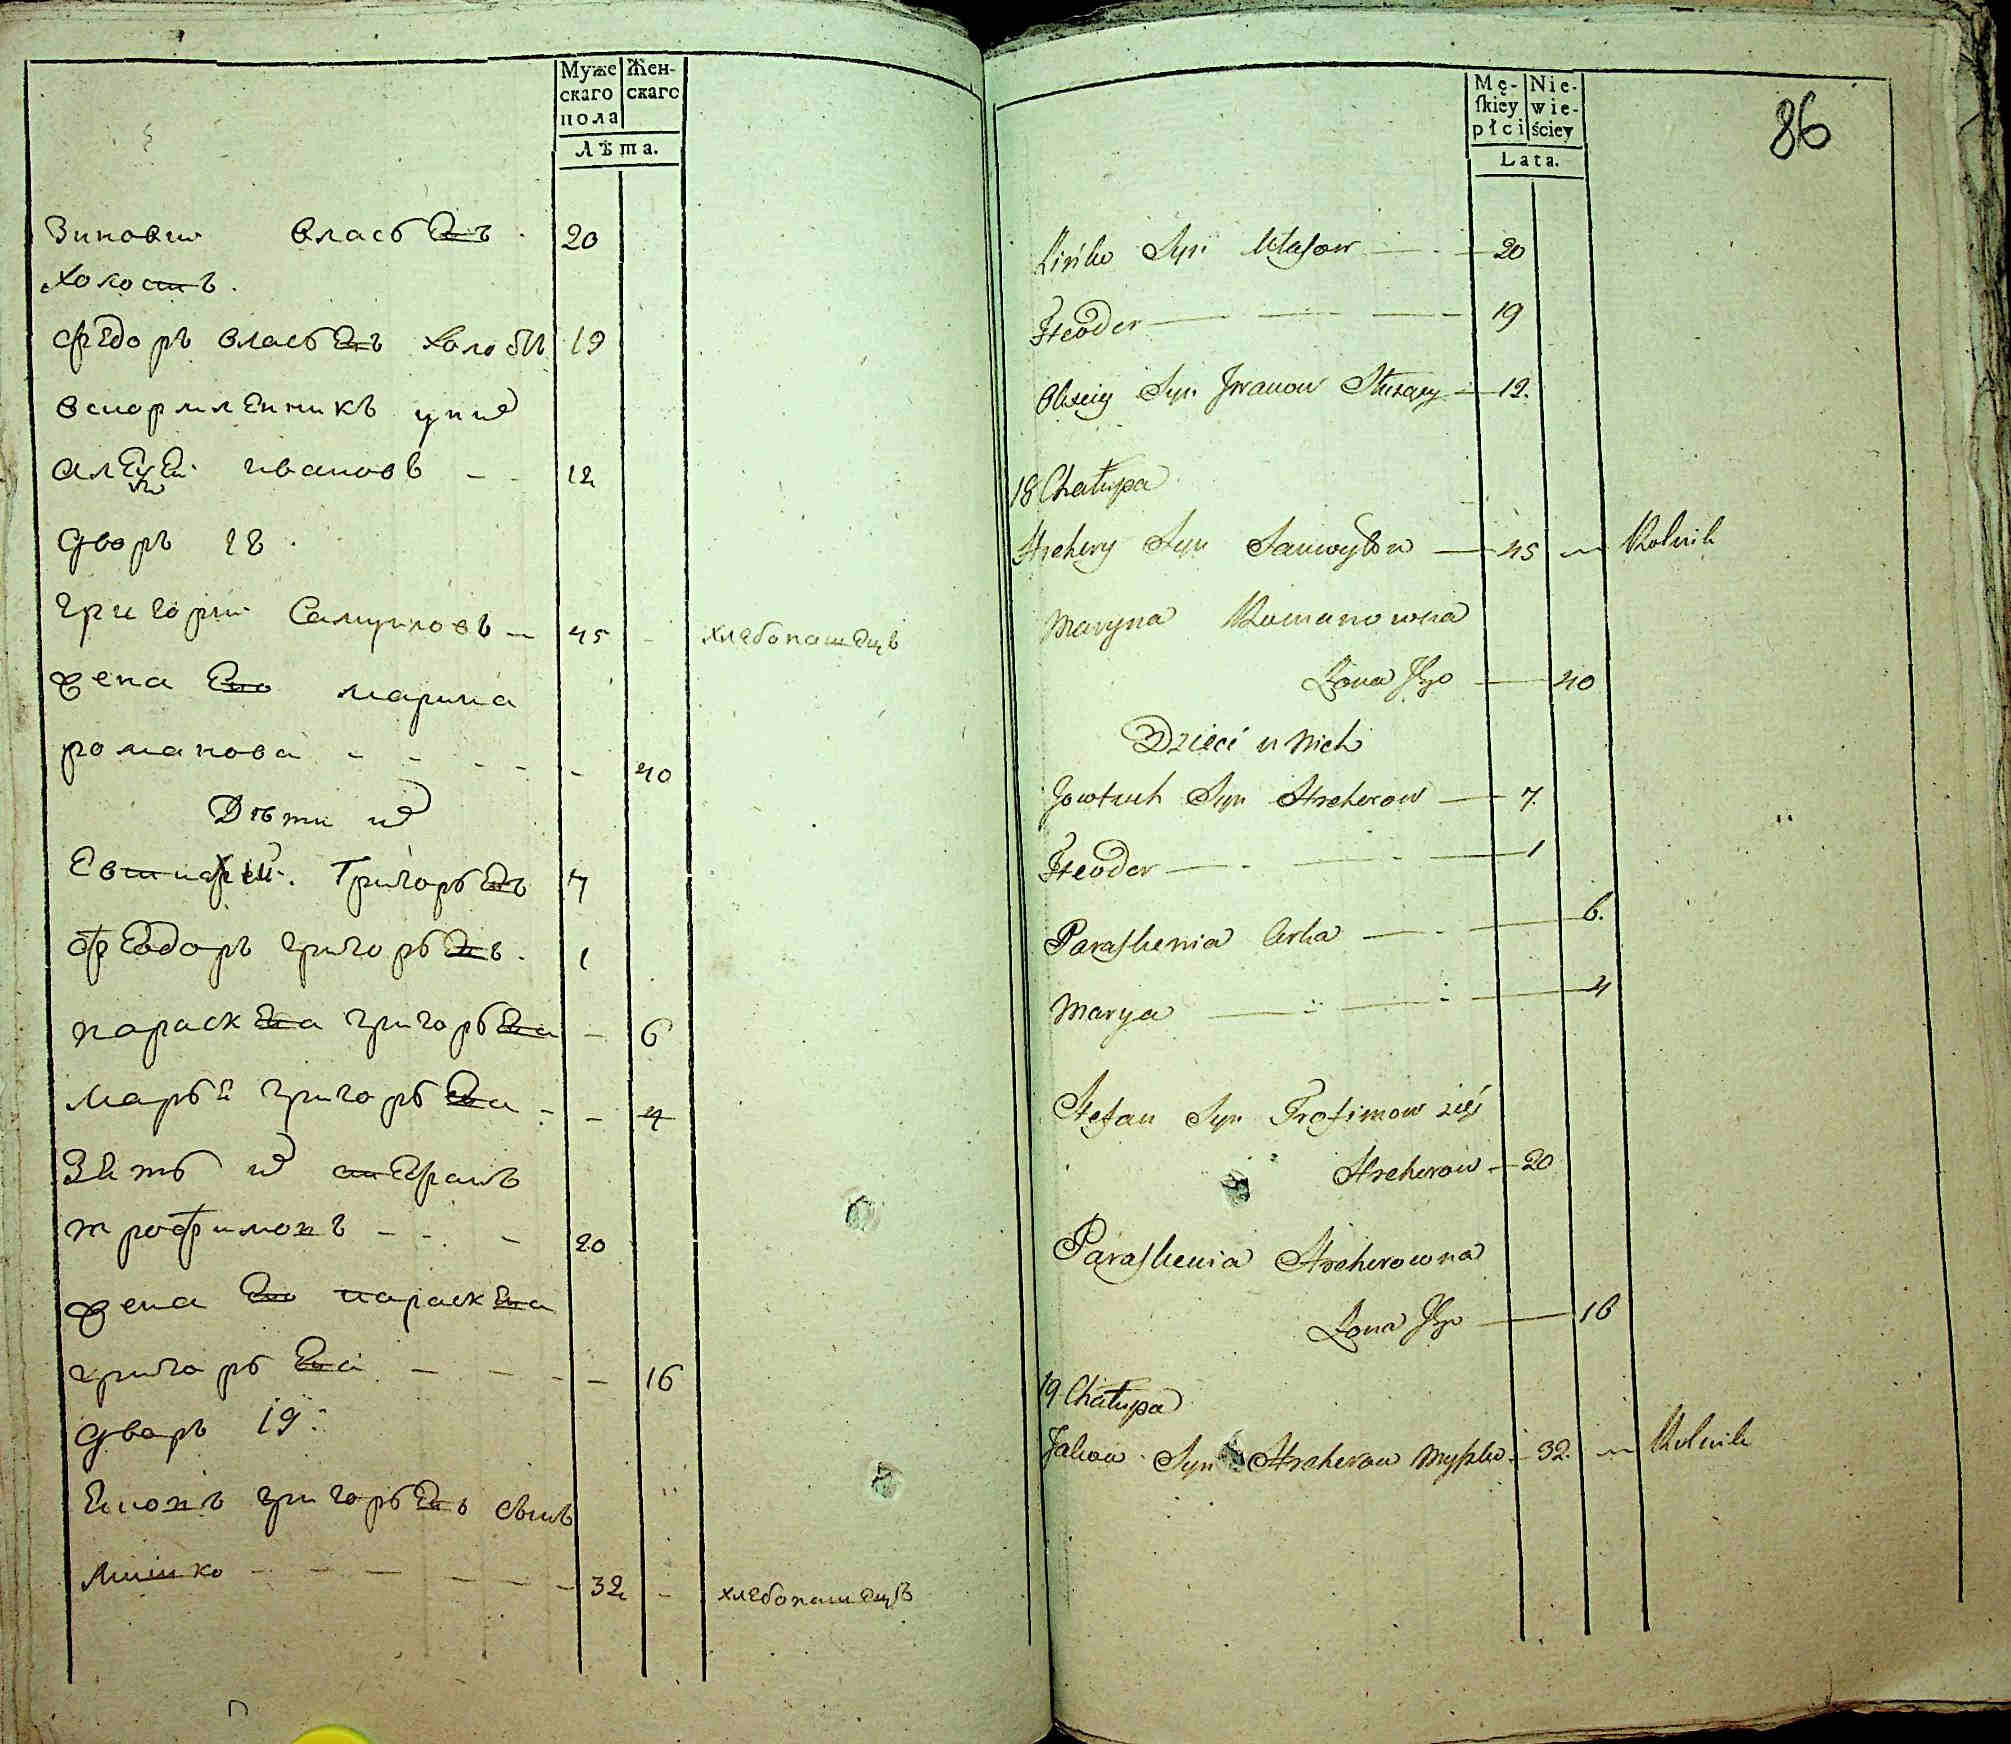 Муже Жен-
скаго скаго
пола
Лѣта.
Зиновии власьевъ 20
холостъ.
федоръ власьевъ холостъ 19
вскормленникъ у них
алексеи ивановъ 12
дворъ 18.
григории Самуиловъ 45 хлебопашецъ
жена его марина
романова 40
Дѣти их
Евтифеи. Григорьевъ 7
феодоръ григорьевъ. 1
параскева григорьева 6
марья григорьева 4
Зять их стефанъ
трофимовъ 20
жена его параскева
григорьева 16
дворъ 19:
григорьевъ сынъ
мишко 32 хлебопашецъ
Mę- Nie-
ſkiey wie-
płci ściey
Lata.
86
Zińko Syn Własow 20
Fteoder 19
Olexiey Syn Jwanow 12.
18 Chałupa
Hrehory Syn Samuyłow 45 Rolnik
Maryna Romanowna
Żona Jego 40
Dzieci u Nich
Jowtuch Syn Hrehorow 7.
Fteoder 1
Paraſkewia Corka 6.
Marya 4
Stefan Syn Trofimow zięć
Hrehorow 20
Paraſkewia Hrehorowna
Żona Jego 16
19 Chałupa
Jakow Syn Hrehorow Myszko 32. Rolnik